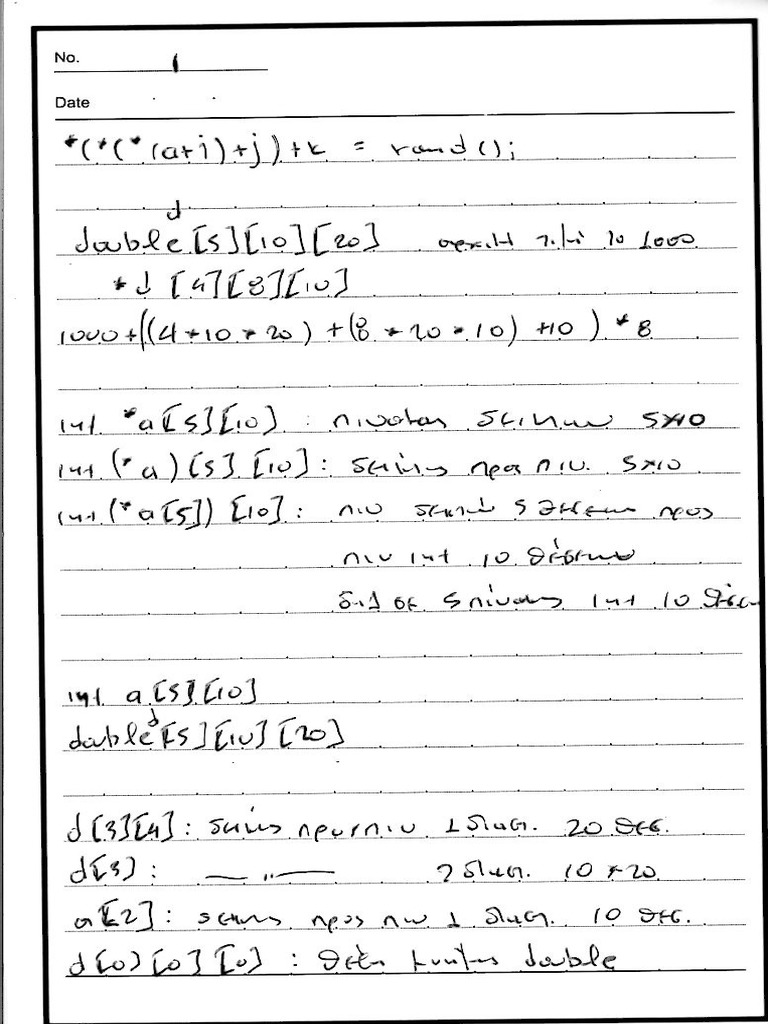 No. 1
Date
*(*(*(a+i)+j)+k = rand();
d
double [5][10][20] αρχική τιμή το 1000
*d [4][8][10]
1000+((4*10*20)+(8*20*10)+10)*8
int *a[5][10] : πινακας δεικτων 5x10
int (*a)[5][10]: δείκτης προς πιν. 5x10
int (*a[5])[10]: πιν δεικτών 5 θέσεων προς
πιν int 10 θέσεων
δηλ σε 5 πίνακες int 10 θέσεων
int a[5][10]
d
double [5][10][20]
d[3][4]: δείκτης προς πιν 1 διαστ. 20 θεσ.
d[3] : — " — 2 διαστ. 10*20
a[2] : δεικτης προς πιν 1 διαστ. 10 θεσ.
d[0][0][0] : θέση double